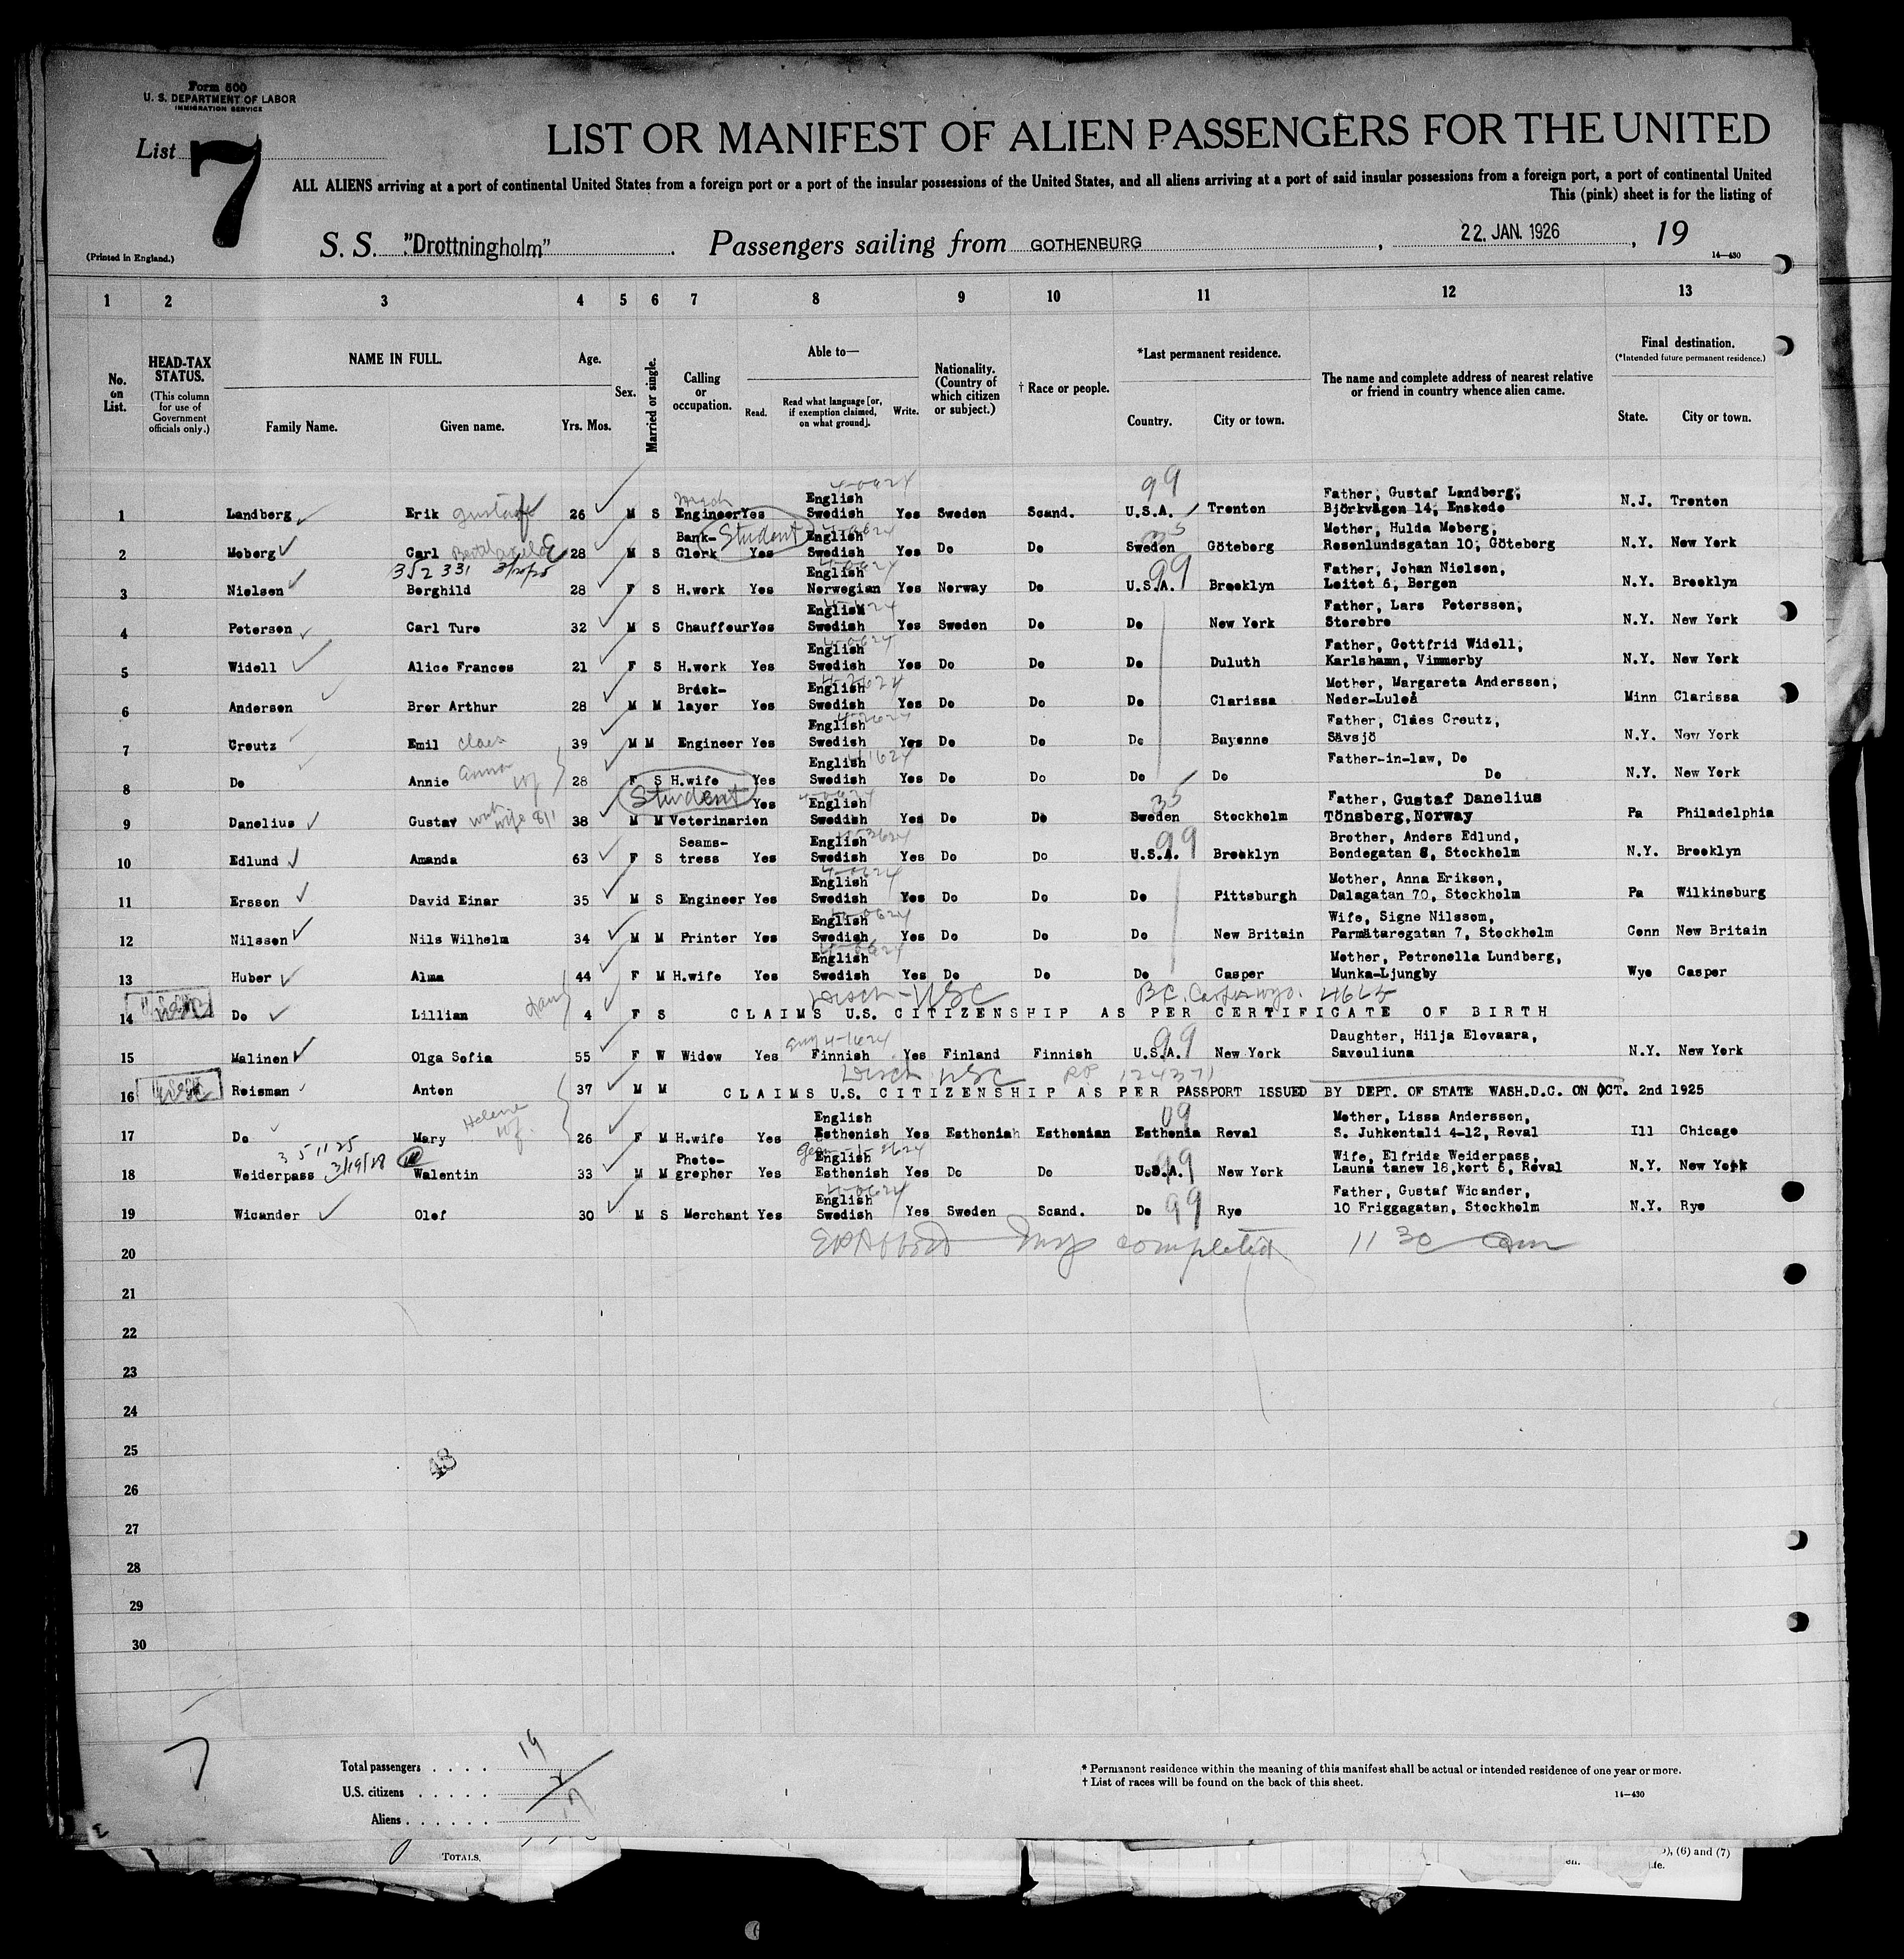 Form 500
U. S. DEPARTMENT OF LABOR
IMMIGRATION SERVICE
List 7
LIST OR MANIFEST OF ALIEN PASSENGERS FOR THE UNITED
ALL ALIENS arriving at a port of continental United States from a foreign port or a port of the insular possessions of the United States, and all aliens arriving at a port of said insular possessions from a foreign port, a port of continental United
This (pink) sheet is for the listing of
(Printed in England.)
S. S. "Drottningholm" . Passengers sailing from GOTHENBURG , 22. JAN. 1926 , 19
14—430
1 2 3 4 5 6 7 8 9 10 11 12 13
No. on List.
HEAD-TAX STATUS.
(This column for use of Government officials only.)
NAME IN FULL.
Family Name. Given name.
Age.
Yrs. Mos.
Sex.
Married or single.
Calling or occupation.
Able to—
Read. Read what language [or, if exemption claimed, on what ground]. Write.
Nationality. (Country of which citizen or subject.)
† Race or people.
*Last permanent residence.
Country. City or town.
The name and complete address of nearest relative or friend in country whence alien came.
Final destination.
(*Intended future permanent residence.)
State. City or town.
4-0624 99
English Father, Gustaf Landberg,
1 Landberg Erik Gustaf 26 M S Engineer Yes Swedish Yes Sweden Scand. U.S.A. Trenton Björkvägen 14, Enskede N.J. Trenton
Bank- Student English 35 Mother, Hulda Moberg,
2 Moberg Carl 28 M S Clerk Yes Swedish Yes Do Do Sweden Göteborg Rosenlundsgatan 10, Göteborg N.Y. New York
352 331 English 99 Father, Johan Nielsen,
3 Nielsen Borghild 28 F S H.work Yes Norwegian Yes Norway Do U.S.A. Brooklyn Leitet 6, Bergen N.Y. Brooklyn
English Father, Lars Petersson,
4 Peterson Carl Ture 32 M S Chauffeur Yes Swedish Yes Sweden Do Do New York Storebro N.Y. New York
English Father, Gottfrid Widell,
5 Widell Alice Frances 21 F S H.work Yes Swedish Yes Do Do Do Duluth Karlshamn, Vimmerby N.Y. New York
Brick- English Mother, Margareta Andersson,
6 Anderson Bror Arthur 28 M M layer Yes Swedish Yes Do Do Do Clarissa Neder-Luleå Minn Clarissa
English Father, Claes Creutz,
7 Creutz Emil Claes 39 M M Engineer Yes Swedish Yes Do Do Do Bayonne Sävsjö N.Y. New York
English Father-in-law, Do
8 Do Annie Anna wf 28 F S H.wife Yes Swedish Yes Do Do Do Do Do N.Y. New York
Student Yes English 35 Father, Gustaf Danelius
9 Danelius Gustav 38 M M Veterinarien Swedish Yes Do Do Sweden Stockholm Tönsberg, Norway Pa Philadelphia
Seams- English 99 Brother, Anders Edlund,
10 Edlund Amanda 63 F S tress Yes Swedish Yes Do Do U.S.A. Brooklyn Bondegatan 8, Stockholm N.Y. Brooklyn
English Mother, Anna Erikson,
11 Ersson David Einar 35 M S Engineer Yes Swedish Yes Do Do Do Pittsburgh Dalagatan 70, Stockholm Pa Wilkinsburg
English Wife, Signe Nilssom,
12 Nilsson Nils Wilhelm 34 M M Printer Yes Swedish Yes Do Do Do New Britain Parmätaregatan 7, Stockholm Conn New Britain
English Mother, Petronella Lundberg,
13 Huber Alma 44 F M H.wife Yes Swedish Yes Do Do Do Casper Munka-Ljungby Wyo Casper
14 Do Lillian 4 F S CLAIMS U.S. CITIZENSHIP AS PER CERTIFICATE OF BIRTH
99 Daughter, Hilja Elovaara,
15 Malinen Olga Sofia 55 F W Widow Yes Finnish Yes Finland Finnish U.S.A. New York Savouliuna N.Y. New York
124371
16 Reisman Anton 37 M M CLAIMS U.S. CITIZENSHIP AS PER PASSPORT ISSUED BY DEPT. OF STATE WASH.D.C. ON OCT. 2nd 1925
English 09 Mother, Lissa Andersson,
17 Do Mary Helene wf. 26 F M H.wife Yes Esthonish Yes Esthoniah Esthonian Esthonia Reval S. Juhkentali 4-12, Reval Ill Chicago
3 5 11 25 3/19/28 Photo- English 99 Wife, Elfrida Weiderpass,
18 Weiderpass Walentin 33 M M grapher Yes Esthonish Yes Do Do U.S.A. New York Launa tanew 18, kort 6, Reval N.Y. New York
English 99 Father, Gustaf Wicander,
19 Wicander Olof 30 M S Merchant Yes Swedish Yes Sweden Scand. Do Rye 10 Friggagatan, Stockholm N.Y. Rye
20 completed 11 30 am
21
22
23
24
25
48
26
27
28
29
30
7
Total passengers . . . . . 19
U.S. citizens . . . . . . 2
Aliens . . . . . . . 17
* Permanent residence within the meaning of this manifest shall be actual or intended residence of one year or more.
† List of races will be found on the back of this sheet.
14—430
TOTALS.
(6) and (7)